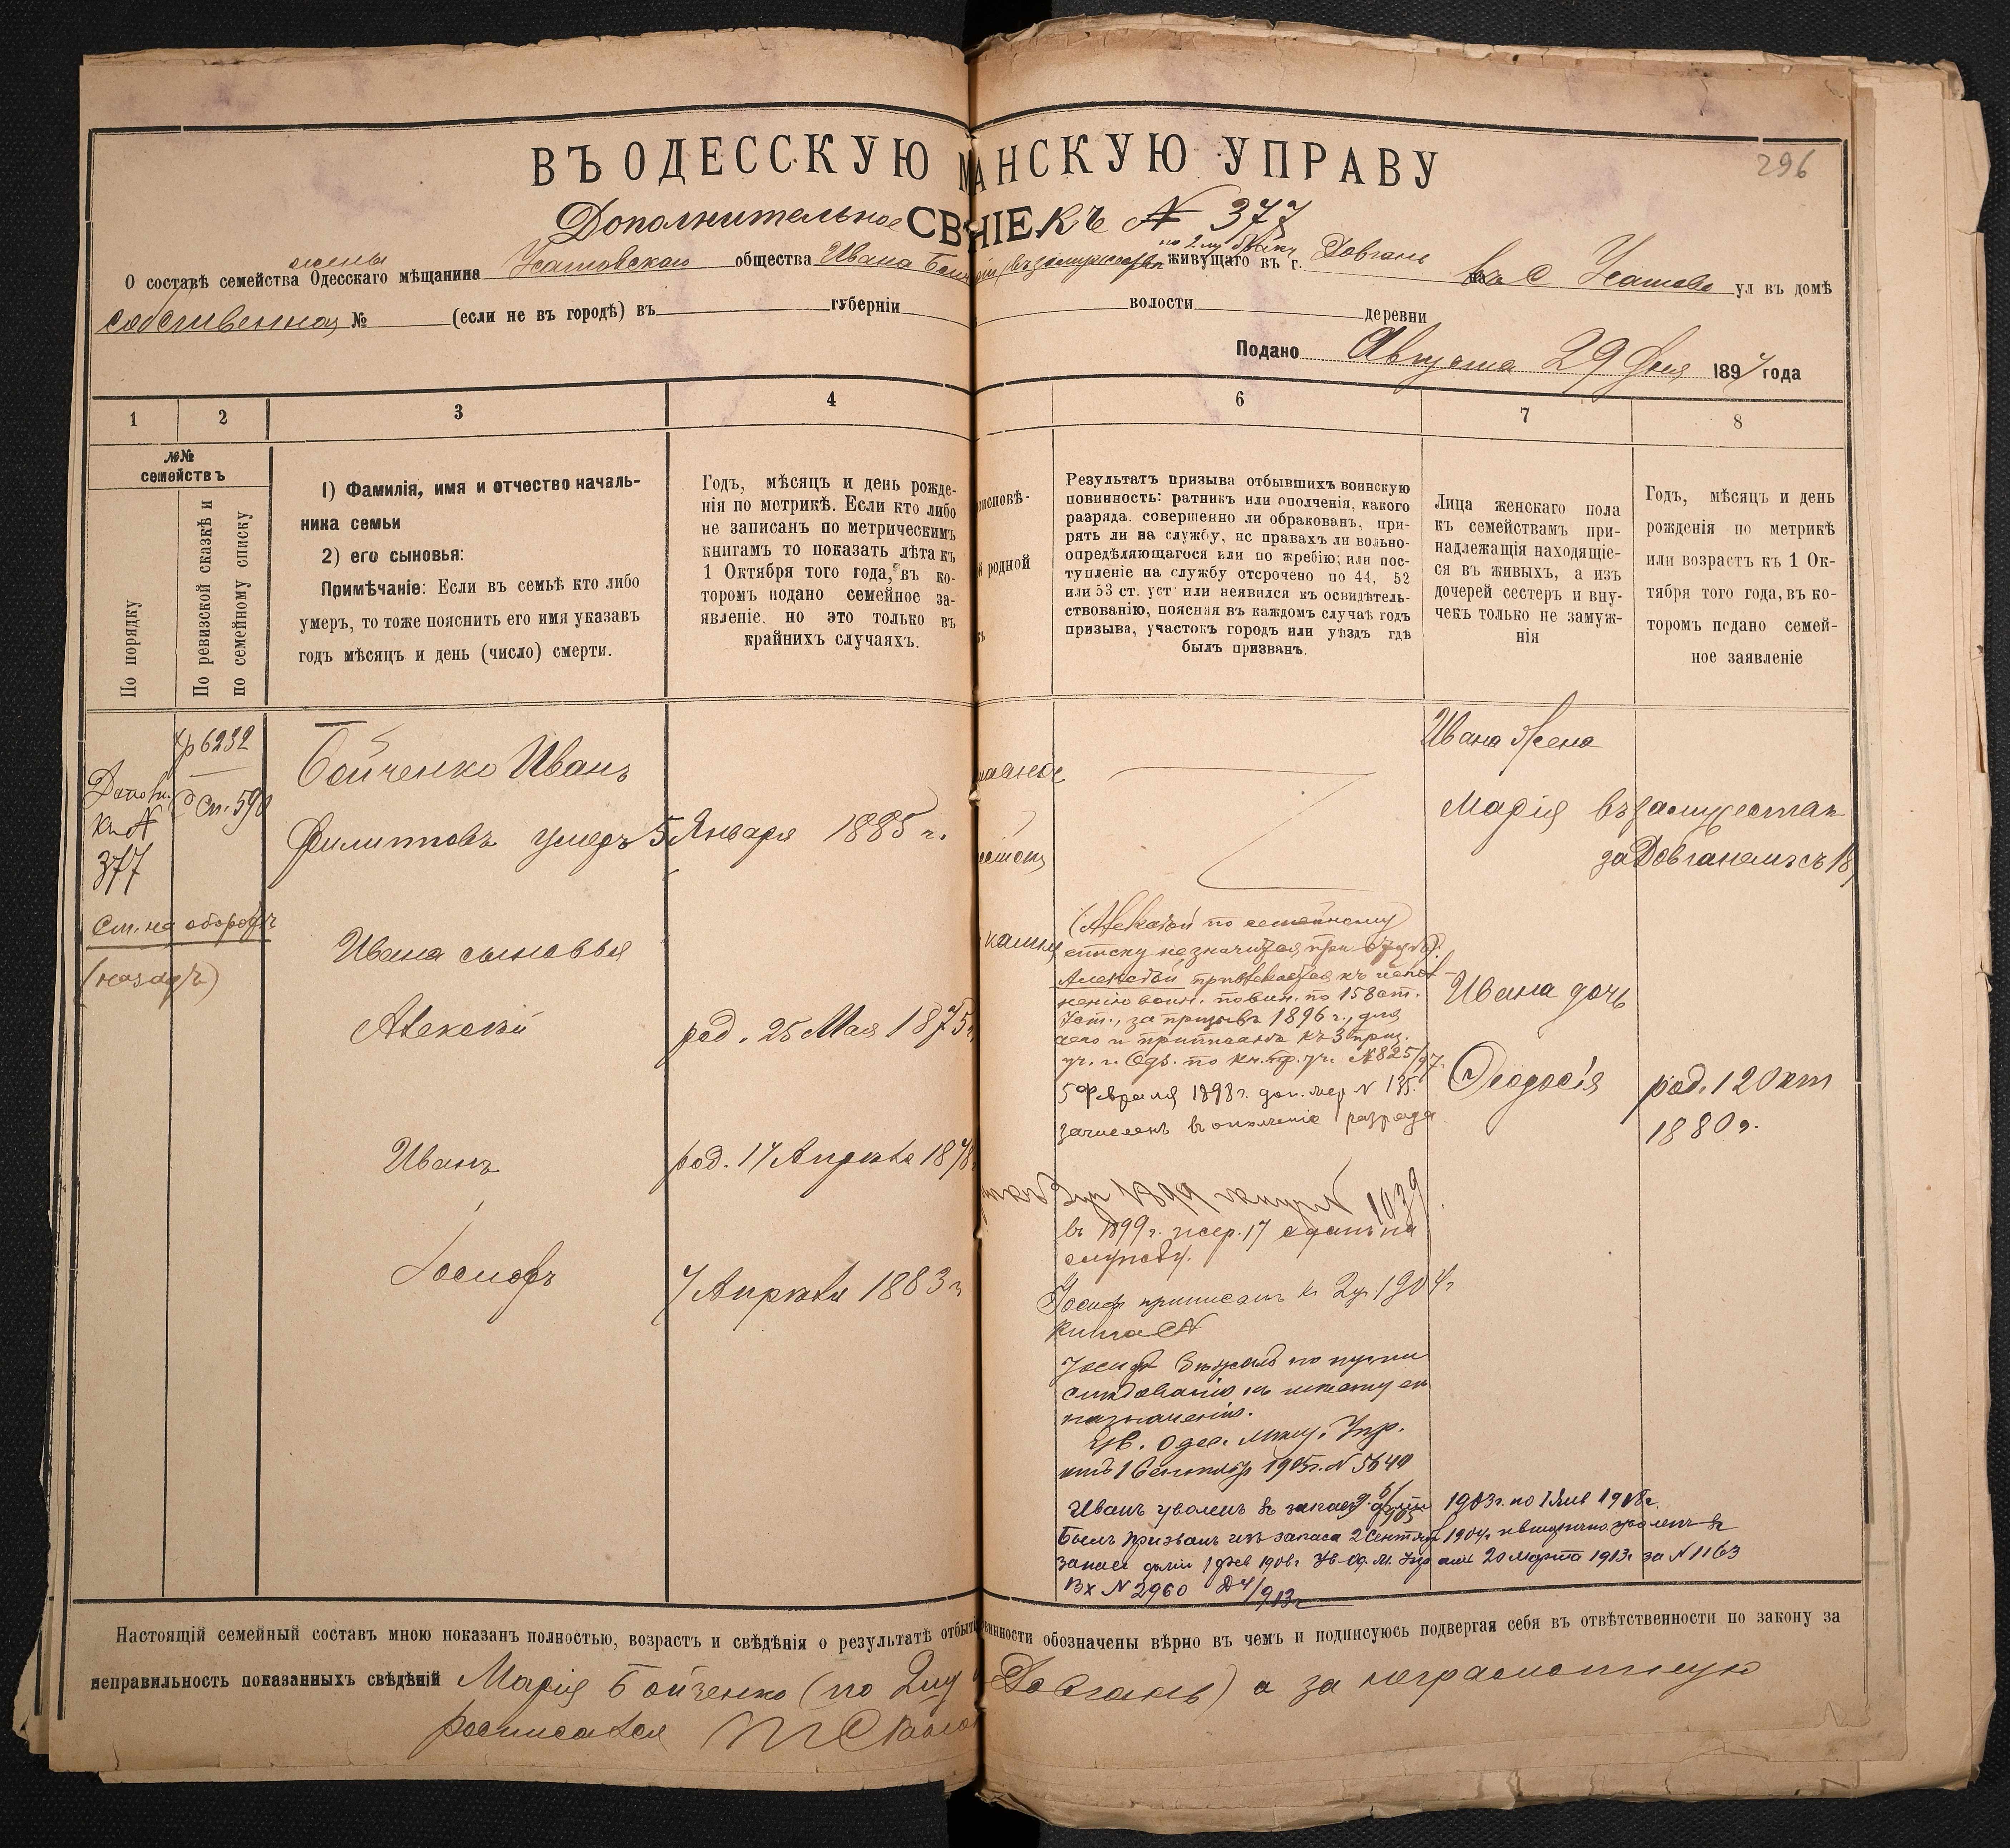 ВЪ ОДЕССКУЮ М АНСКУЮ УПРАВУ
296
Дополнительное СВ НІЕ къ № 377
жены по 2 му браку
О составѣ семейства Одесскаго мѣщанина Усатовскаго общества Ивана живущаго въ г. Довгань въ с Усатово ул въ домѣ
собственная № (если не въ городѣ) въ губерніи волости деревни
Подано Августа 29 дня 1897 года
1 2 3 4 6 7 8
№№ семействъ
По порядку
По ревизской сказкѣ и
по семейному списку
1) Фамилія, имя и отчество началь-
ника семьи
2) его сыновья:
Примѣчаніе: Если въ семьѣ кто либо
умеръ, то тоже пояснить его имя указавъ
годъ мѣсяцъ и день (число) смерти.
Годъ, мѣсяцъ и день рожде-
нія по метрикѣ. Если кто либо
не записанъ по метрическимъ
книгамъ то показать лѣта къ
1 Октября того года, въ ко-
торомъ подано семейное за-
явленіе, но это только въ
крайнихъ случаяхъ.
оисповѣ-
й родной
ъ
Результатъ призыва отбывшихъ воинскую
повинность: ратникъ или ополченія, какого
разряда. совершенно ли обракованъ, при-
рять ли на службу, нс правахъ ли вольно-
опредѣляющагося или по жребію; или пос-
тупленіе на службу отсрочено по 44, 52
или 53 ст. уст или неявился къ освидѣтель-
ствованію, поясняя въ каждомъ случаѣ годъ
призыва, участокъ городъ или уѣздъ гдѣ
былъ призванъ.
Лица женскаго пола
къ семействамъ при-
надлежащія находящіе-
ся въ живыхъ, а изъ
дочерей сестеръ и вну-
чекъ только не замуж-
нія
Годъ, мѣсяцъ и день
рожденія по метрикѣ
или возрастъ къ 1 Ок-
тября того года, въ ко-
торомъ подано семей-
ное заявленіе
6232
См. 590
Дополн.
къ №
377
См. на оборотѣ
(назадъ)
Бойченко Иванъ
Филипповъ умеръ 5 Января 1885 г.
Ивана сыновья
Алексѣй род. 25 Мая 1875
Иванъ род. 17 Апрѣля 1878
Іосифъ 7 Апрѣля 1883 г
(Алексѣй по семейному
списку незначится
Алексѣй привлекается къ испол-
ненію воин. повин. по 158 ст.
Уст., за призывъ 1896 г., для
чего и приписанъ къ 3 приз.
уч. г. Одз. по кн. пр. уч. №825/97.
5 Февраля 1898 г. № 135
зачисленъ въ ополченіе 1 разряда
1899 1039
въ 1899 г. жер. 17 сданъ на
службу.
Іосиф приписанъ к 2 уч 1904 г
книга №
Іосиф бѣжалъ по пути
слѣдованія къ мѣсту ея
назначенія.
Ув. Одес. Мѣщ. Упр.
отъ 1 Сентября 1905 г. № 5640
Иванъ уволенъ въ запасъ арміи 1903 г. по 1 Янв 1918 г.
Былъ призванъ изъ запаса 2 Сентяб 1904 г и вторично уволенъ въ
запасъ арміи 1 Фев 1906 г Ув. Од. М. Упр отъ 20 Марта 1913 г за № 1163
Вх № 2960
Ивана жена
Марія въ замужествѣ
за Довганемъ съ 18
Ивана дочь
Ѳеодосія род. 12 Окт
1880 г.
Настоящій семейный составъ мною показанъ полностью, возрастъ и свѣдѣнія о результатѣ отбыт инности обозначены вѣрно въ чемъ и подписуюсь подвергая себя въ отвѣтственности по закону за
неправильность показанныхъ свѣдѣній Марія Бойченко (по 2му Довгань) а за неграмотную
росписался